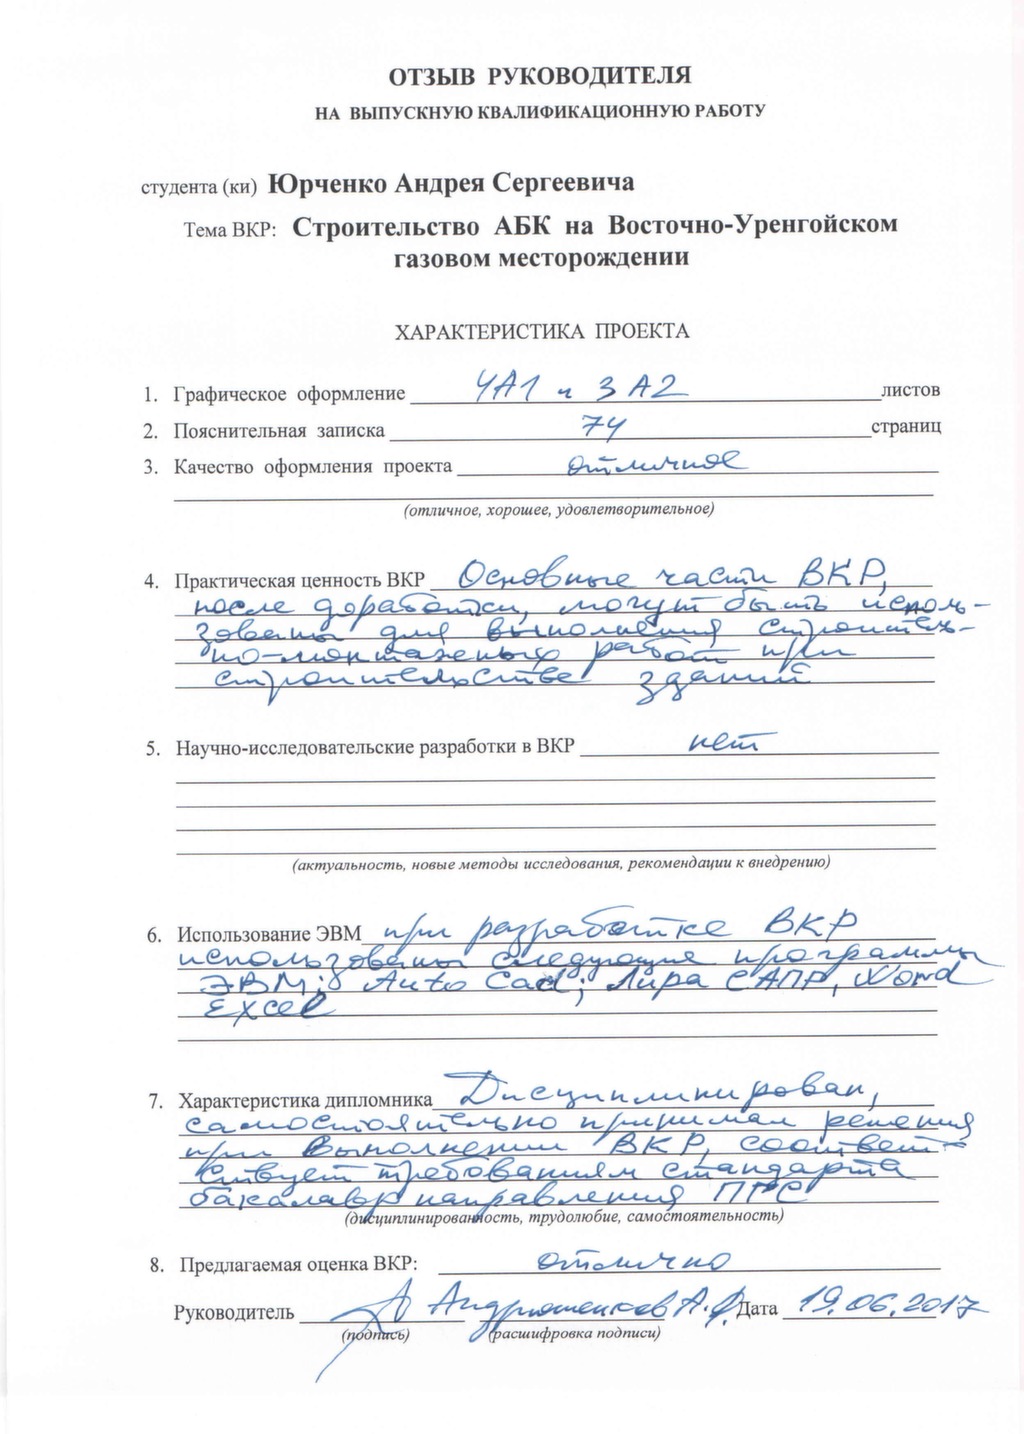 ОТЗЫВ РУКОВОДИТЕЛЯ
НА ВЫПУСКНУЮ КВАЛИФИКАЦИОННУЮ РАБОТУ
студента (ки) Юрченко Андрея Сергеевича
Тема ВКР: Строительство АБК на Восточно-Уренгойском
газовом месторождении
ХАРАКТЕРИСТИКА ПРОЕКТА
1. Графическое оформление 4А1 и 3А2 листов
2. Пояснительная записка 74 страниц
3. Качество оформления проекта отличное
(отличное, хорошее, удовлетворительное)
4. Практическая ценность ВКР Основные части ВКР,
после доработки, могут быть исполь-
зованы для выполнения строитель-
но-монтажных работ при
строительстве зданий
5. Научно-исследовательские разработки в ВКР нет
(актуальность, новые методы исследования, рекомендации к внедрению)
6. Использование ЭВМ при разработке ВКР
использованы следующие программы
ЭВМ: Auto Cad; Лира САПР, Word
Excel
7. Характеристика дипломника Дисциплинирован,
самостоятельно принимал решения
при выполнении ВКР, соответ-
ствует требованиям стандарта
бакалавр направления ПГС
(дисциплинированность, трудолюбие, самостоятельность)
8. Предлагаемая оценка ВКР: отлично
Руководитель Андрюшенков А.Ф. Дата 19.06.2017
(подпись) (расшифровка подписи)